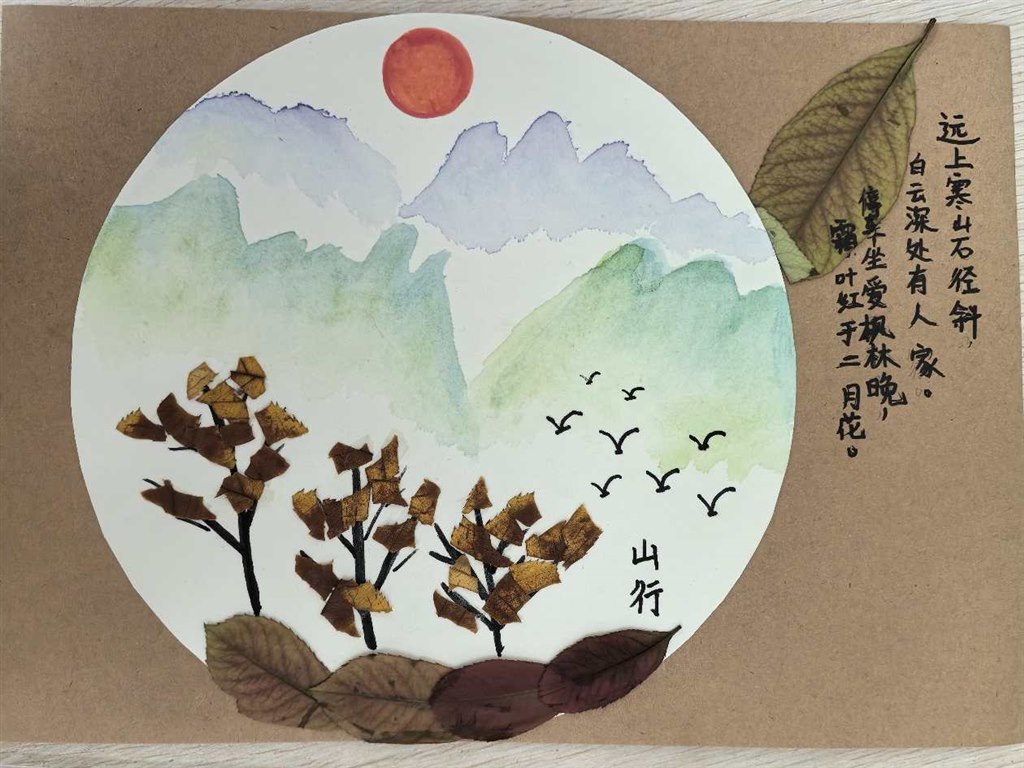 远上寒山石径斜，
白云深处有人家。
停车坐爱枫林晚，
霜叶红于二月花。
山行